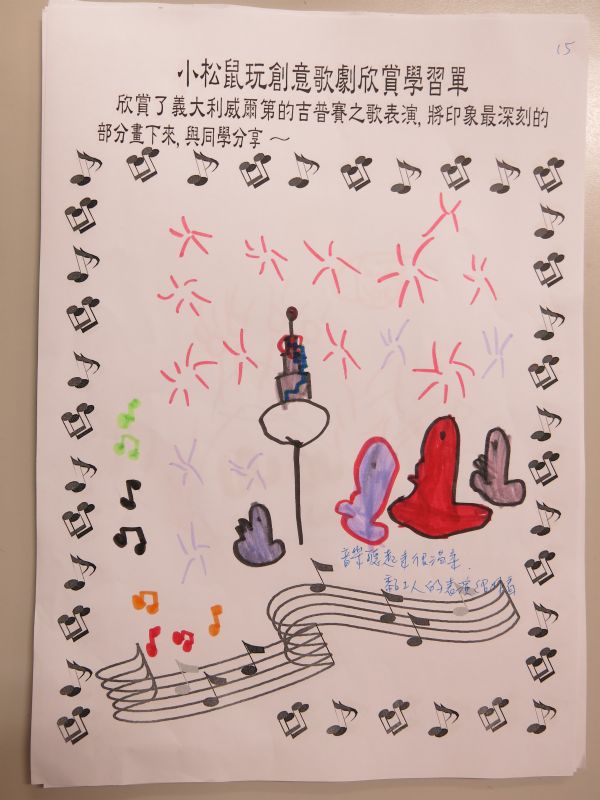 15
小松鼠玩創意歌劇欣賞學習單
欣賞了義大利威爾第的吉普賽之歌表演,將印象最深刻的
部分畫下來,與同學分享～
音樂聽起來很溫柔.
黏土人的表演很好看